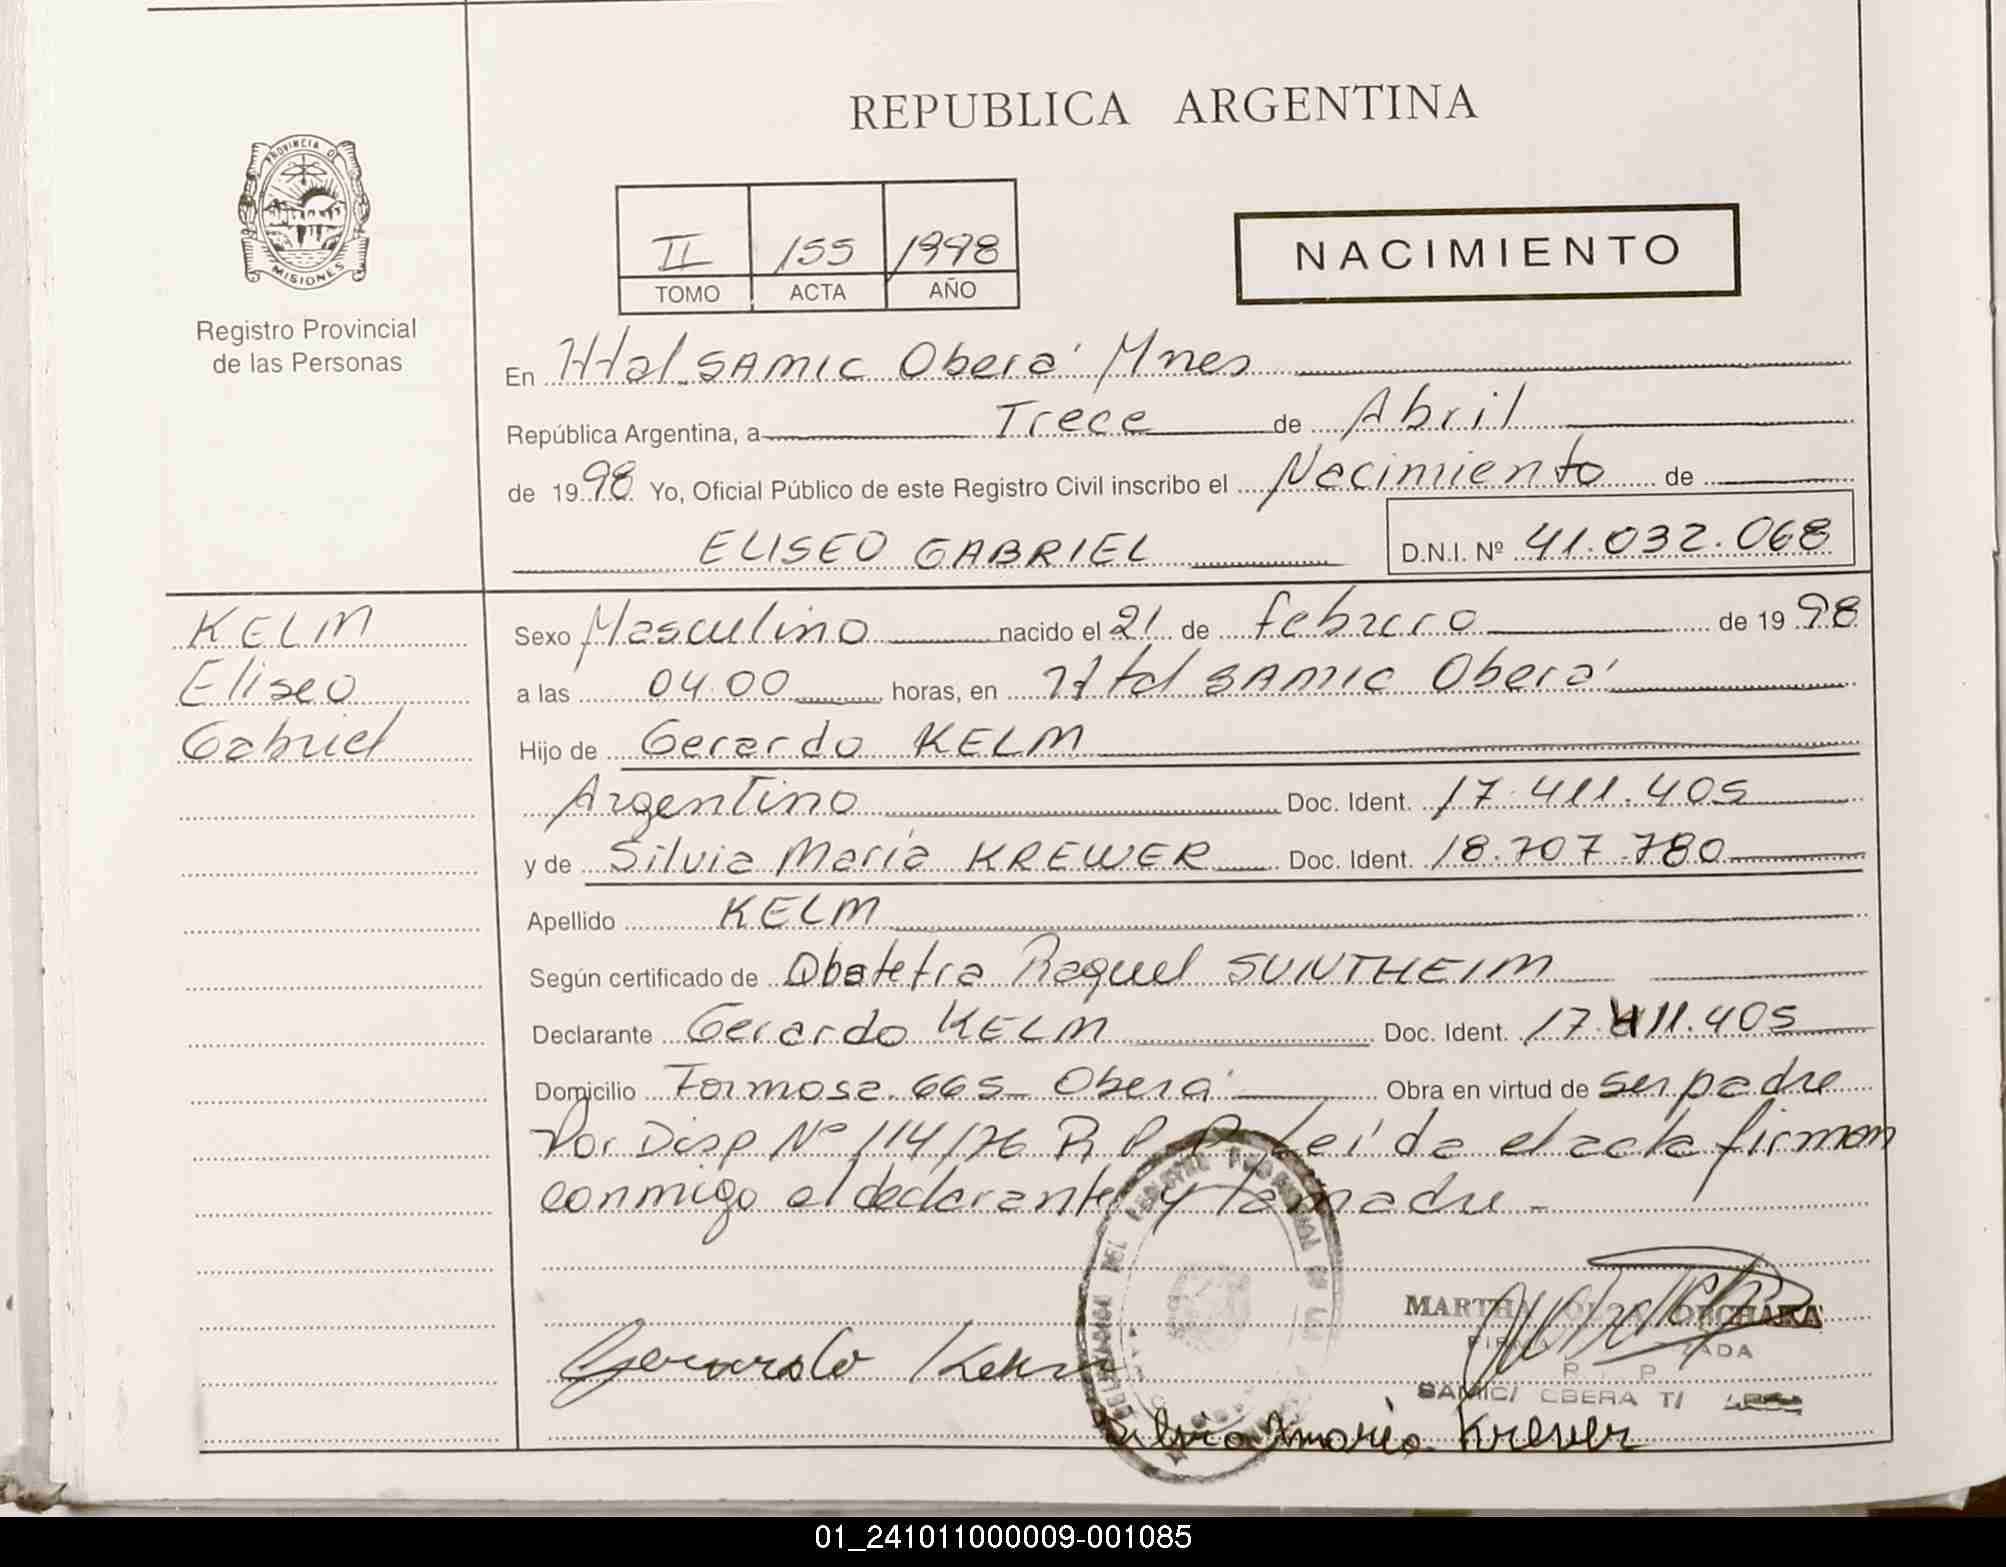 REPUBLICA ARGENTINA
PROVINCIA DE
MISIONES
Registro Provincial
de las Personas
II 155 1998
TOMO ACTA AÑO
NACIMIENTO
En Htal SAMIC Oberá Mnes
República Argentina, a Trece de Abril
de 1998 Yo, Oficial Público de este Registro Civil inscribo el Nacimiento de
ELISEO GABRIEL D.N.I. Nº 41.032.068
KELM
Eliseo
Gabriel
Sexo Masculino nacido el 21 de febrero de 1998
a las 04.00 horas, en Htal SAMIC Oberá
Hijo de Gerardo KELM
Argentino Doc. Ident. 17.411.405
y de Silvia María KREWER Doc. Ident. 18.707.780
Apellido KELM
Según certificado de Obstetra Raquel SUNTHEIM
Declarante Gerardo KELM Doc. Ident. 17.411.405
Domicilio Formosa 665 - Oberá Obra en virtud de ser padre
Por Disp Nº 114/76 R P P Leída el acta firman
conmigo el declarante y la madre.-
MARTHA
SAMIC/ OBERA
Gerardo Kelm
Silvia María Krewer
01_241011000009-001085